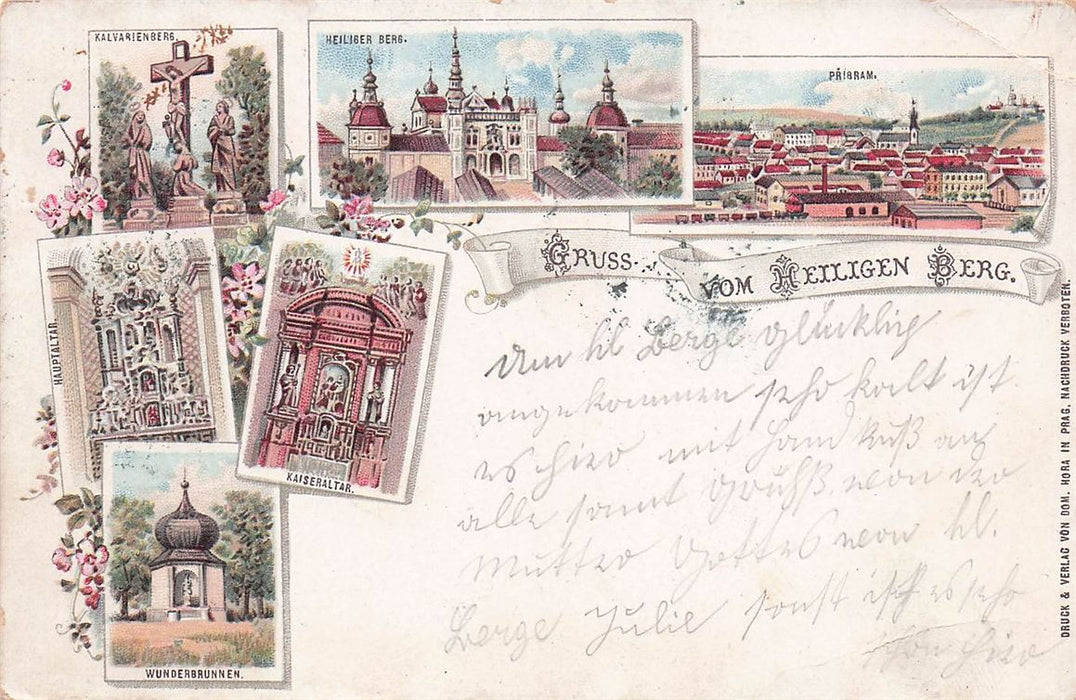 KALVARIENBERG.
HEILIGER BERG.
PŘIBRAM.
GRUSS
VOM HEILIGEN BERG.
HAUPTALTAR.
KAISERALTAR.
WUNDERBRUNNEN.
Am hl Berge glücklich
angekommen sehr kalt ist
es hier mit Hand Kuß an
alle samt Grüße von der
Mutter Gottes von hl.
Berge Julie sonst ist es sehr
hier
DRUCK & VERLAG VON DOM. HORA IN PRAG, NACHDRUCK VERBOTEN.